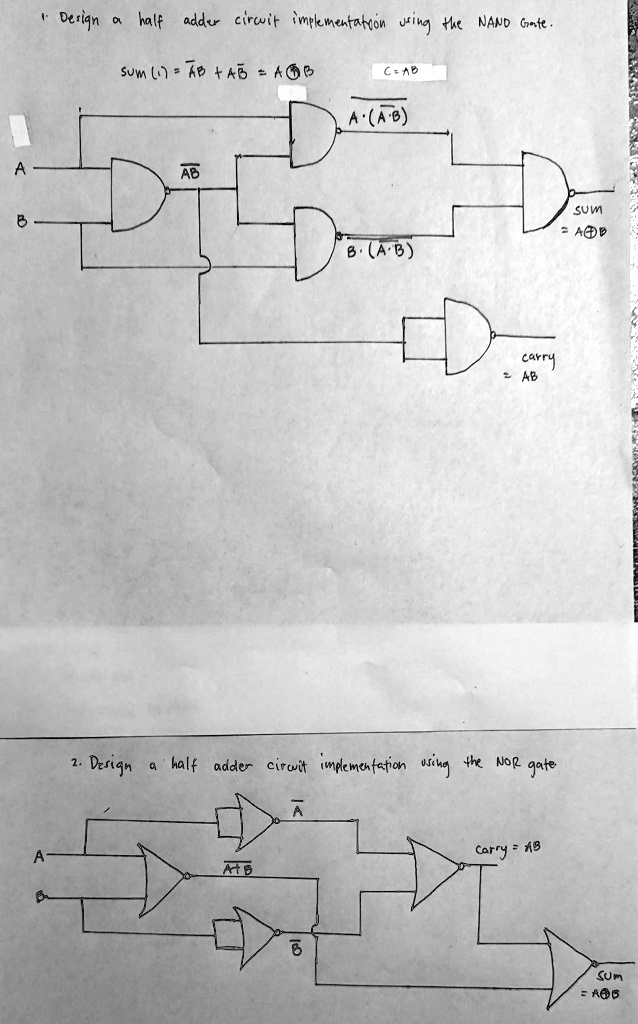 1. Design a half adder circuit implementation using the NAND Gate.
Sum (1) = A̅B + AB̅ = A ⊕ B
C = AB
A̅·̅(̅A̅·̅B̅)̅
A
A̅B̅
B
sum
= A⊕B
B̅·̅(̅A̅·̅B̅)̅
carry
= AB
2. Design a half adder circuit implementation using the NOR gate
A̅
A
carry = AB
A̅+̅B̅
B
B̅
sum
= A⊕B